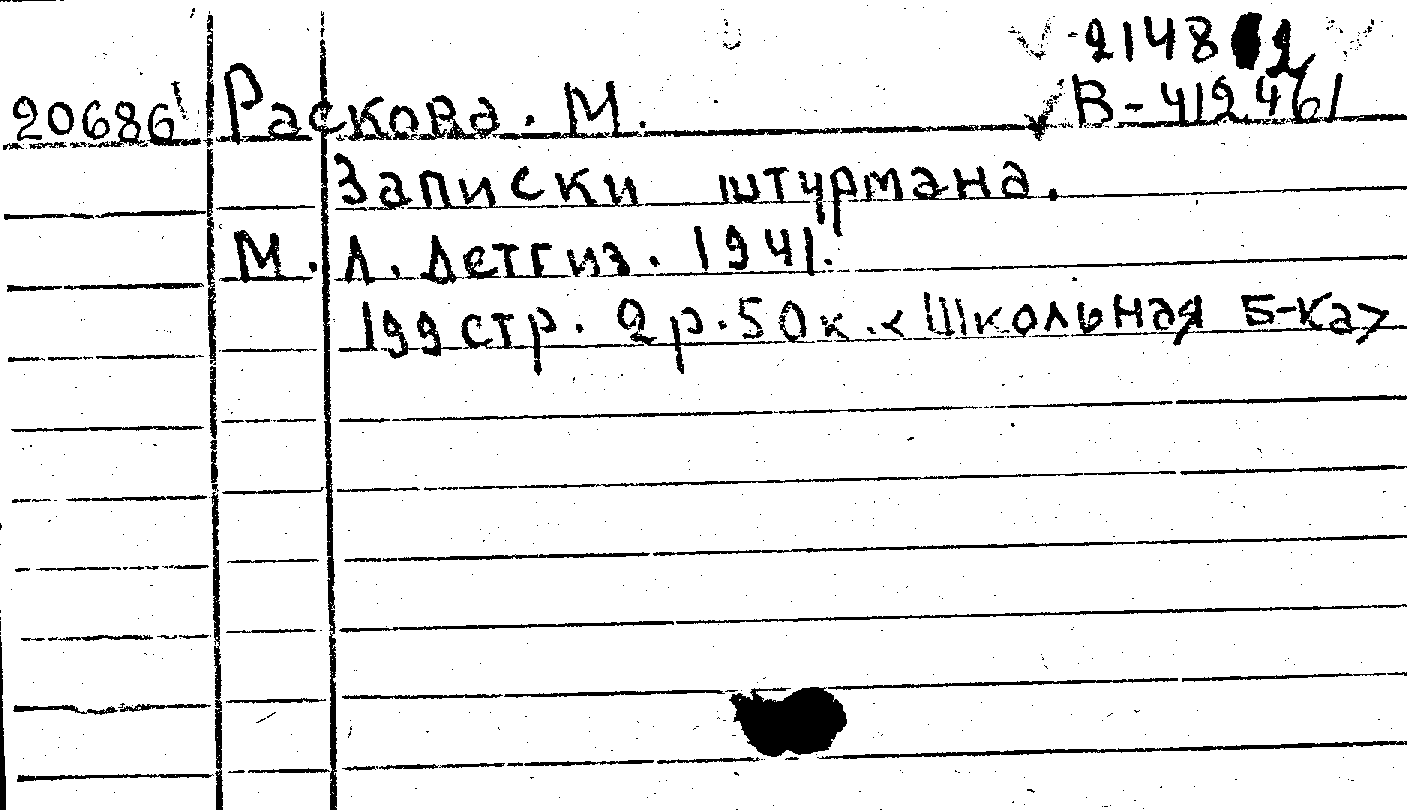 2148 2
20686 Раскова. М. В-412461
Записки штурмана.
М. Л. Детгиз. 1941.
199 стр. 2 р. 50 к. <Школьная Б-ка>